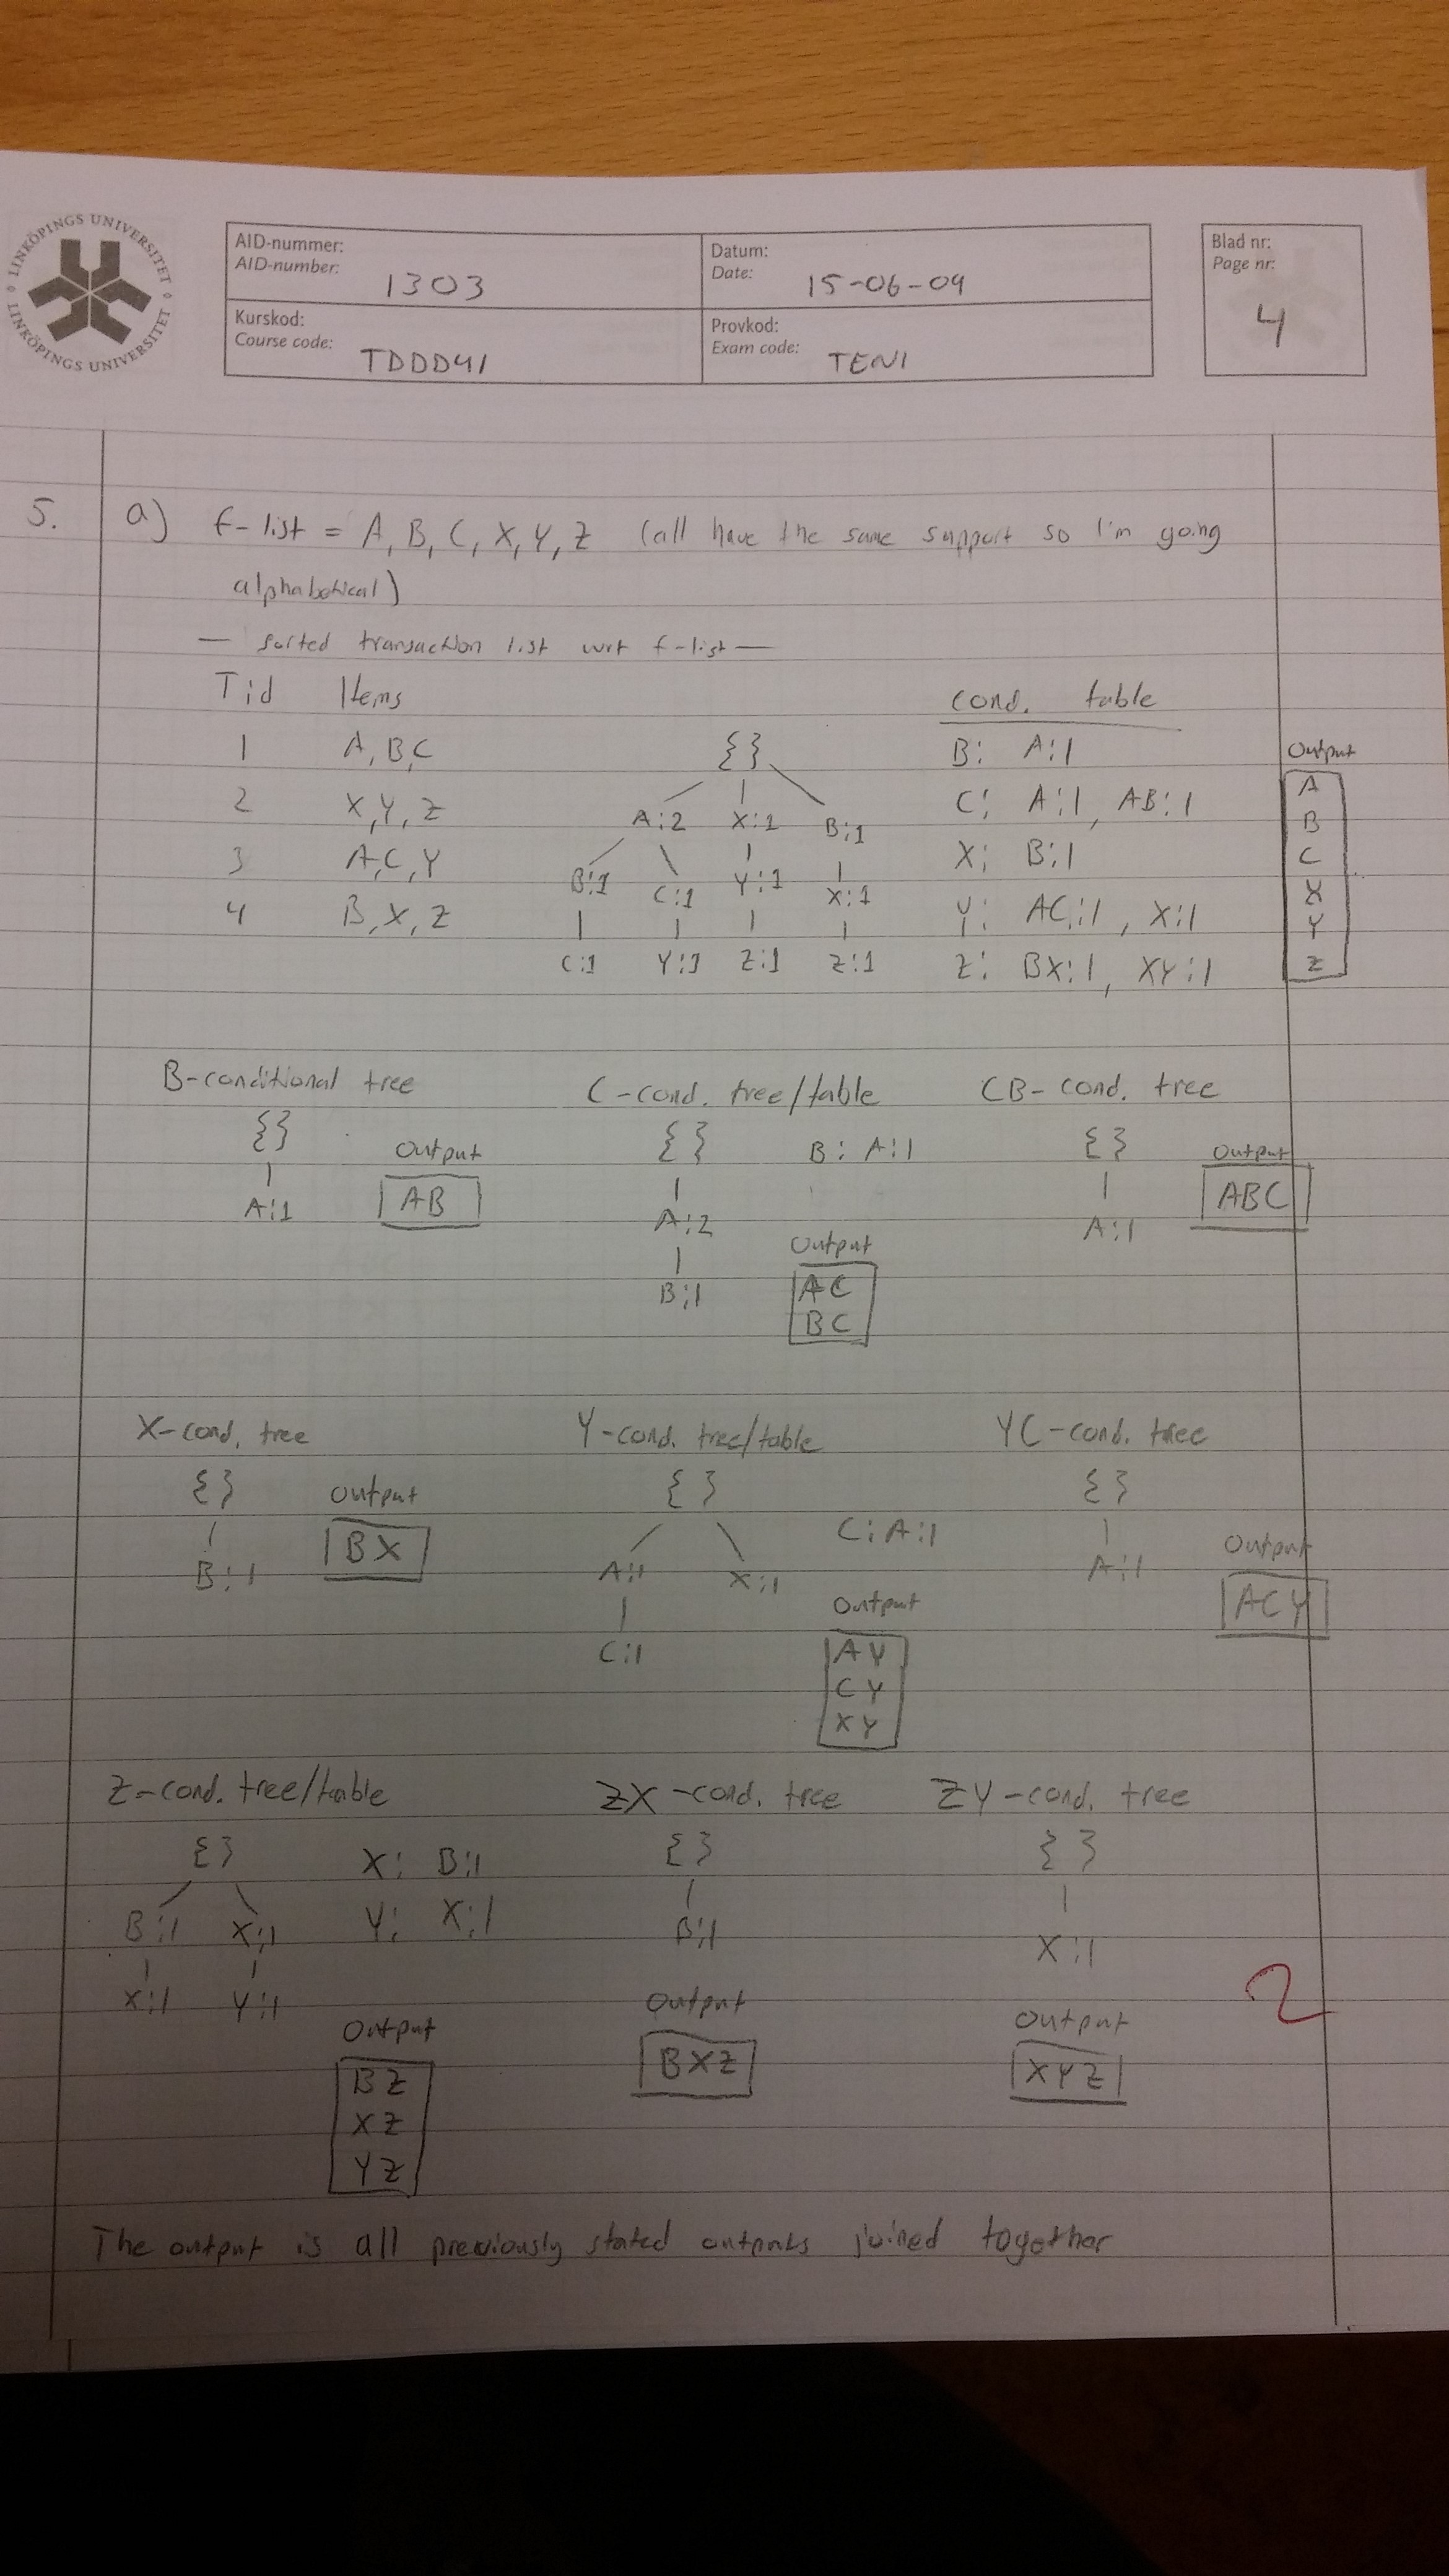 LINKÖPINGS UNIVERSITET
LINKÖPINGS UNIVERSITET
AID-nummer:
AID-number: 1303
Datum:
Date: 15-06-09
Blad nr:
Page nr:
4
Kurskod:
Course code: TDDD41
Provkod:
Exam code: TEN1
5. a) f-list = A, B, C, X, Y, Z (all have the same support so I'm going
alphabetical)
— sorted transaction list wrt f-list —
Tid Items
1 A, B, C
2 X, Y, Z
3 A, C, Y
4 B, X, Z
{}
A:2 X:1 B:1
B:1 C:1 Y:1 X:1
C:1 Y:1 Z:1 Z:1
cond. table
B: A:1
C: A:1, AB:1
X: B:1
Y: AC:1, X:1
Z: BX:1, XY:1
Output
A
B
C
X
Y
Z
B-conditional tree
{}
A:1
Output
AB
C-cond. tree/table
{}
A:2
B:1
B: A:1
Output
AC
BC
CB-cond. tree
{}
A:1
Output
ABC
X-cond. tree
{}
B:1
Output
BX
Y-cond. tree/table
{}
A:1 X:1
C:1
C: A:1
Output
AY
CY
XY
YC-cond. tree
{}
A:1
Output
ACY
Z-cond. tree/table
{}
B:1 X:1
X:1 Y:1
X: B:1
Y: X:1
Output
BZ
XZ
YZ
ZX-cond. tree
{}
B:1
Output
BXZ
ZY-cond. tree
{}
X:1
Output
XYZ
2
The output is all previously stated outputs joined together